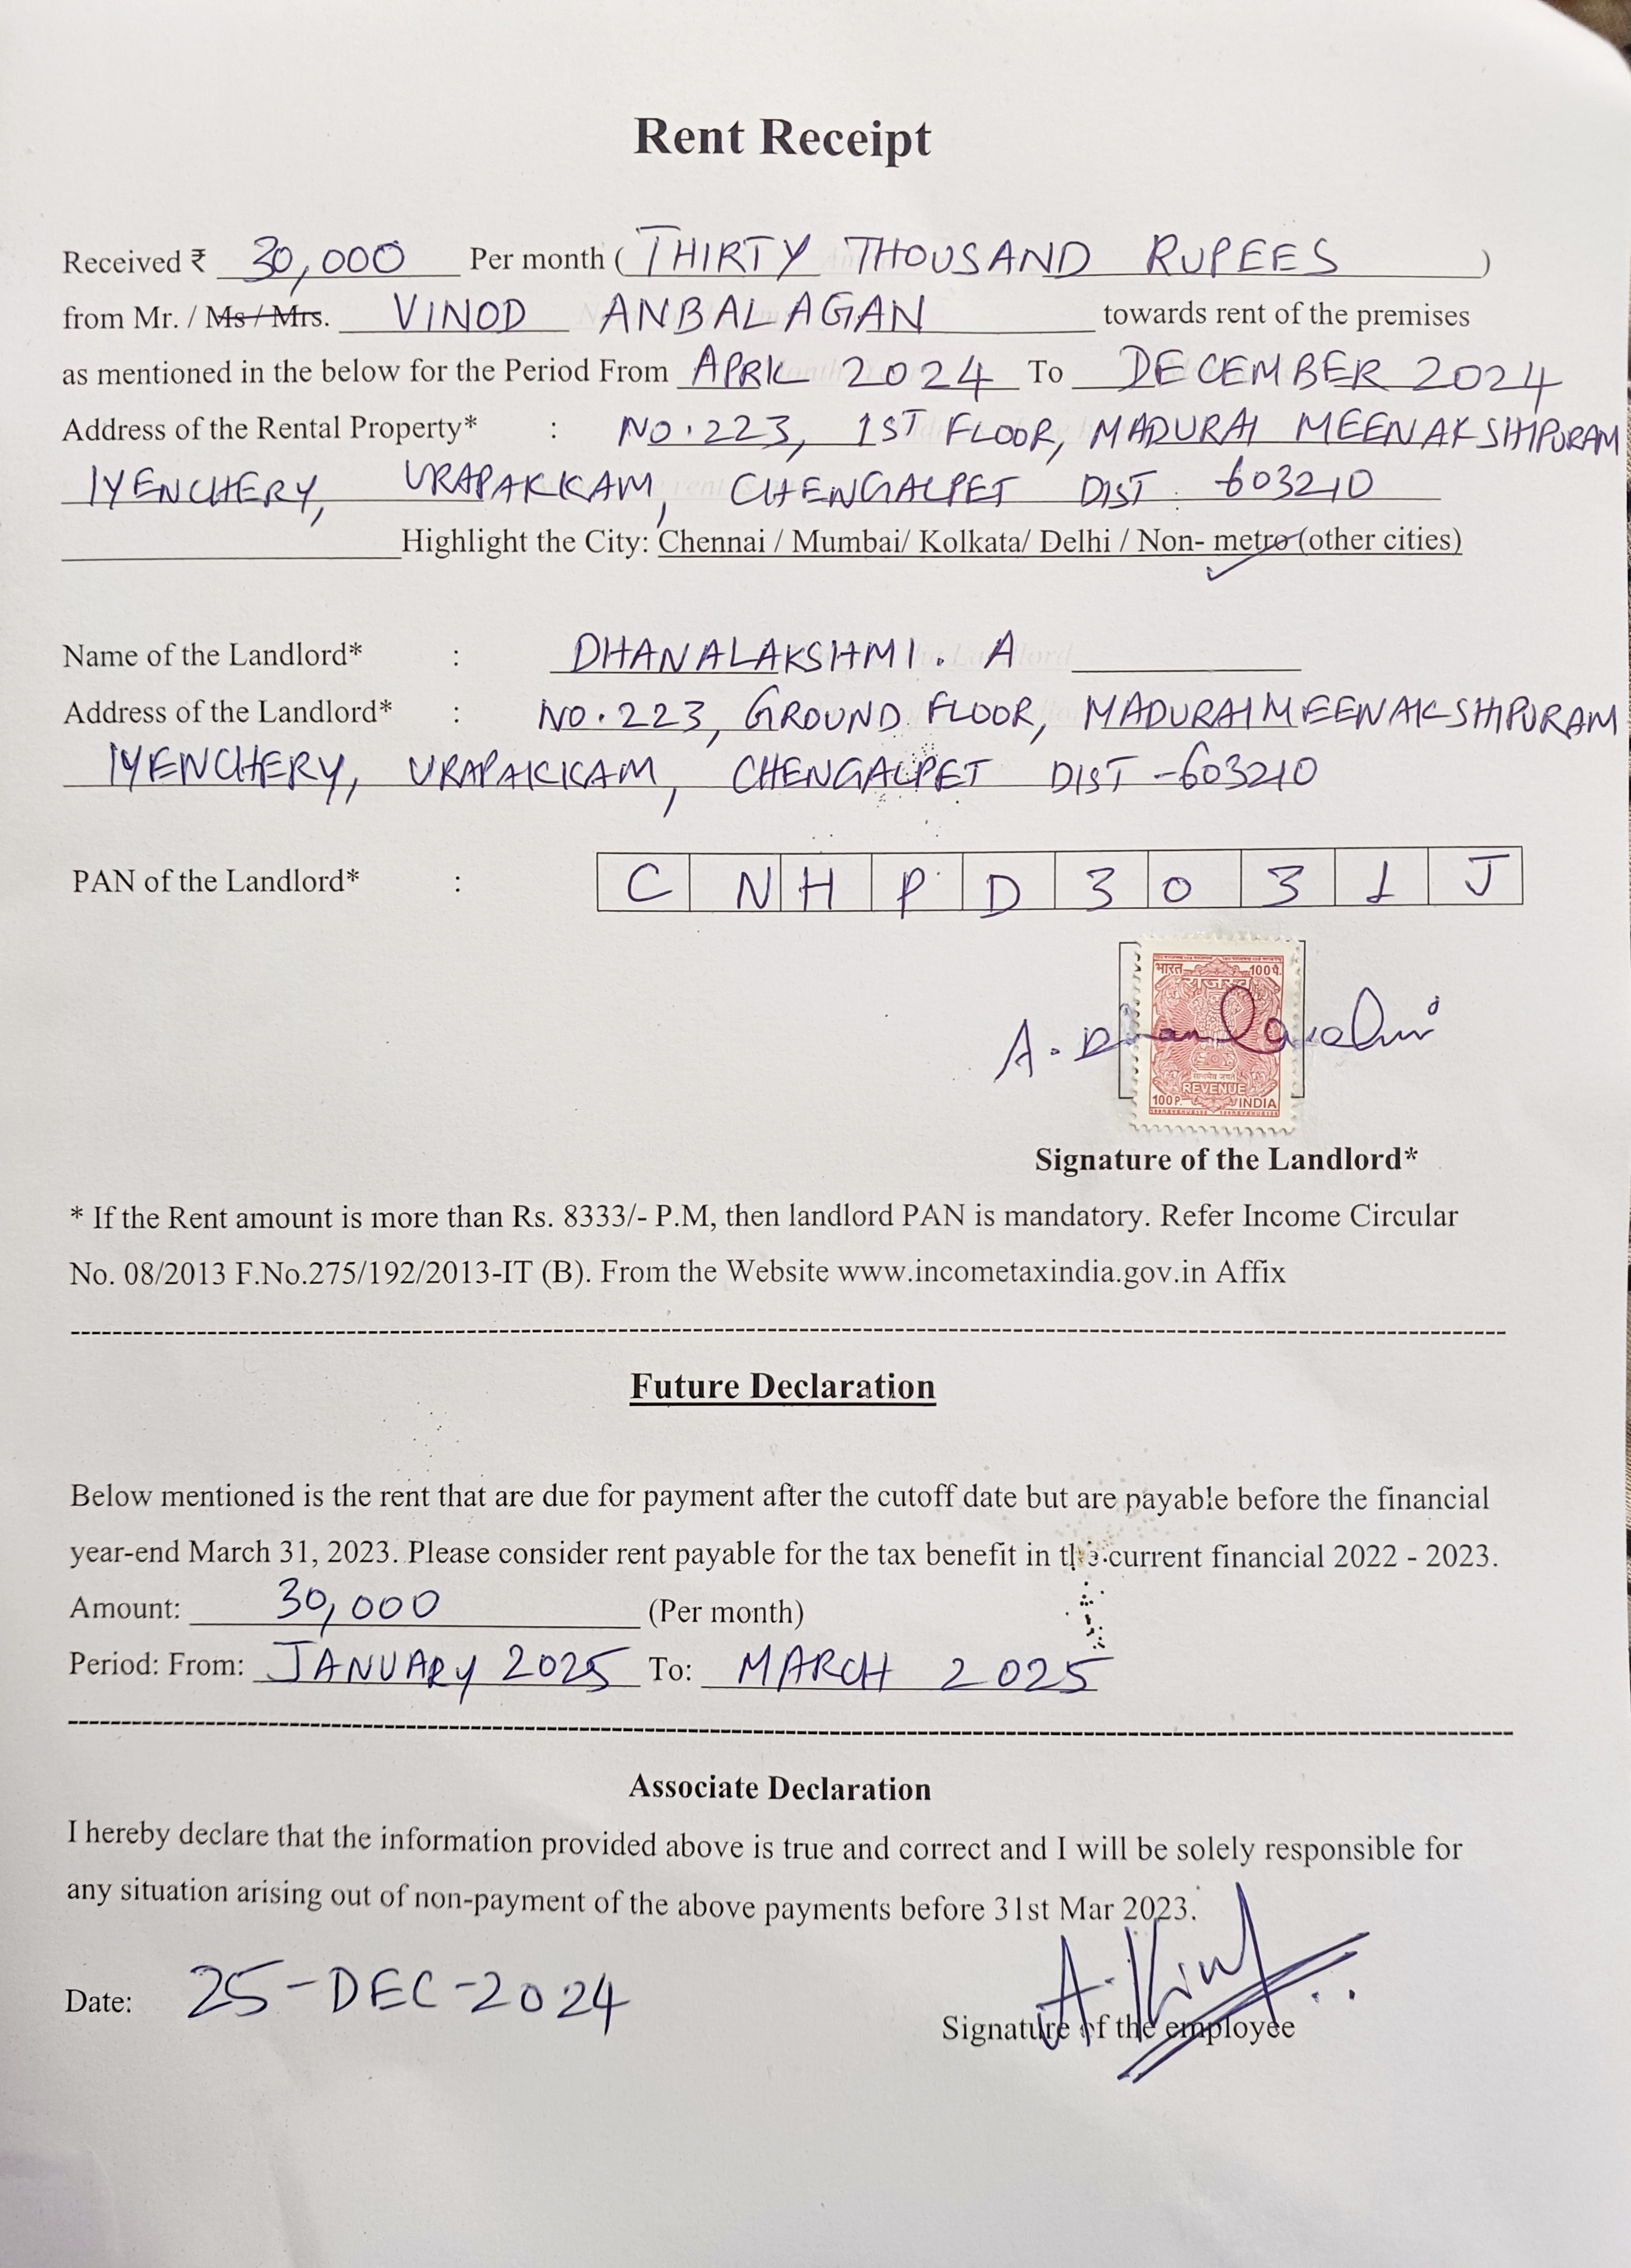 Rent Receipt
Received ₹ 30,000 Per month ( THIRTY THOUSAND RUPEES )
from Mr. / Ms / Mrs. VINOD ANBALAGAN towards rent of the premises
as mentioned in the below for the Period From APRIL 2024 To DECEMBER 2024
Address of the Rental Property* : NO.223, 1ST FLOOR, MADURAI MEENAKSHIPURAM
IYENCHERY, URAPAKKAM, CHENGALPET DIST - 603210
Highlight the City: Chennai / Mumbai/ Kolkata/ Delhi / Non- metro (other cities)
Name of the Landlord* : DHANALAKSHMI. A
Address of the Landlord* : NO.223, GROUND FLOOR, MADURAI MEENAKSHIPURAM
IYENCHERY, URAPAKKAM, CHENGALPET DIST -603210
PAN of the Landlord* : C N H P D 3 0 3 1 J
भारत 100 प.
राजस्व
A. Dhanalakshmi
सत्यमेव जयते
REVENUE
100 P. INDIA
Signature of the Landlord*
* If the Rent amount is more than Rs. 8333/- P.M, then landlord PAN is mandatory. Refer Income Circular
No. 08/2013 F.No.275/192/2013-IT (B). From the Website www.incometaxindia.gov.in Affix
Future Declaration
Below mentioned is the rent that are due for payment after the cutoff date but are payable before the financial
year-end March 31, 2023. Please consider rent payable for the tax benefit in the current financial 2022 - 2023.
Amount: 30,000 (Per month)
Period: From: JANUARY 2025 To: MARCH 2025
Associate Declaration
I hereby declare that the information provided above is true and correct and I will be solely responsible for
any situation arising out of non-payment of the above payments before 31st Mar 2023.
Date: 25-DEC-2024
Signature of the employee